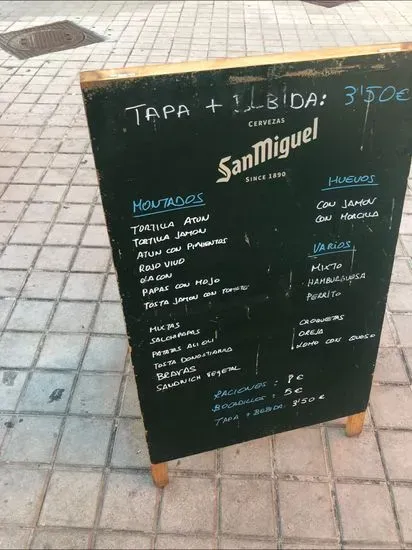 TAPA + BEBIDA: 3'50€
CERVEZAS
San Miguel
SINCE 1890
MONTADOS
TORTILLA ATUN
TORTILLA JAMON
ATUN CON PIMIENTOS
ROJO VIVO
LACON
PAPAS CON MOJO
TOSTA JAMON CON TOMATE
MIXTAS
SALCHIPAPAS
PATATAS ALI OLI
TOSTA DONOSTIARRA
BRAVAS
SANDWICH VEGETAL
HUEVOS
CON JAMON
CON MORCILLA
VARIOS
MIXTO
HAMBURGUESA
PERRITO
CROQUETAS
OREJA
LOMO CON QUESO
RACIONES: 8€
BOCADILLOS: 5€
TAPA + BEBIDA: 3'50€